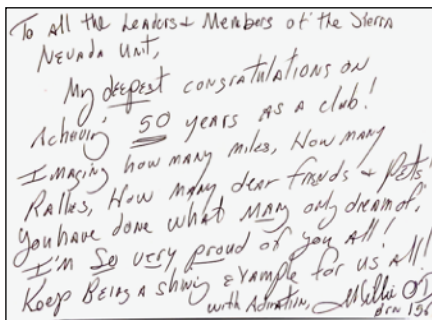 To All the Leaders & Members of the Sierra
Nevada Unit,
My deepest congratulations on
Acheving 50 years as a club!
Imaging how many miles, How many
Rallies, How many dear friends & Pets!
You have done what many only dream of,
I'm So very proud of you all!
Keep Being a shing example for us all!
with Admiration, Millie